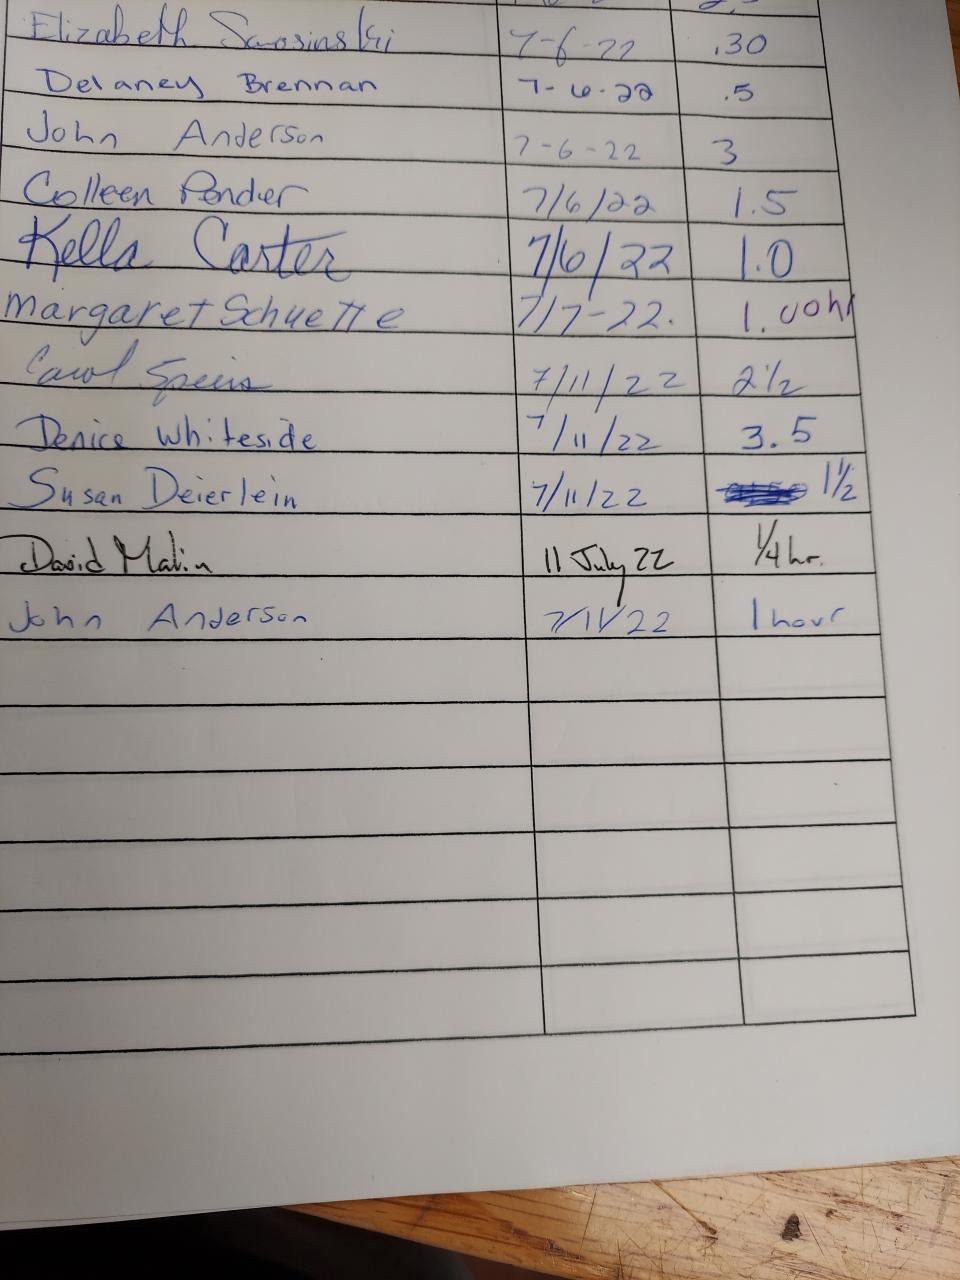 Elizabeth 7-6-22 .30
Delaney Brennan 7-6-22 .5
John Anderson 7-6-22 3
Colleen Pender 7/6/22 1.5
Kella Carter 7/6/22 1.0
Margaret Schuette 7/7-22. 1.
Carol 7/11/22 2 1/2
Denice Whiteside 7/11/22 3.5
Susan Deierlein 7/11/22 1 1/2
David Malin 11 July 22 1/4 hr.
John Anderson 7/11/22 1 hour